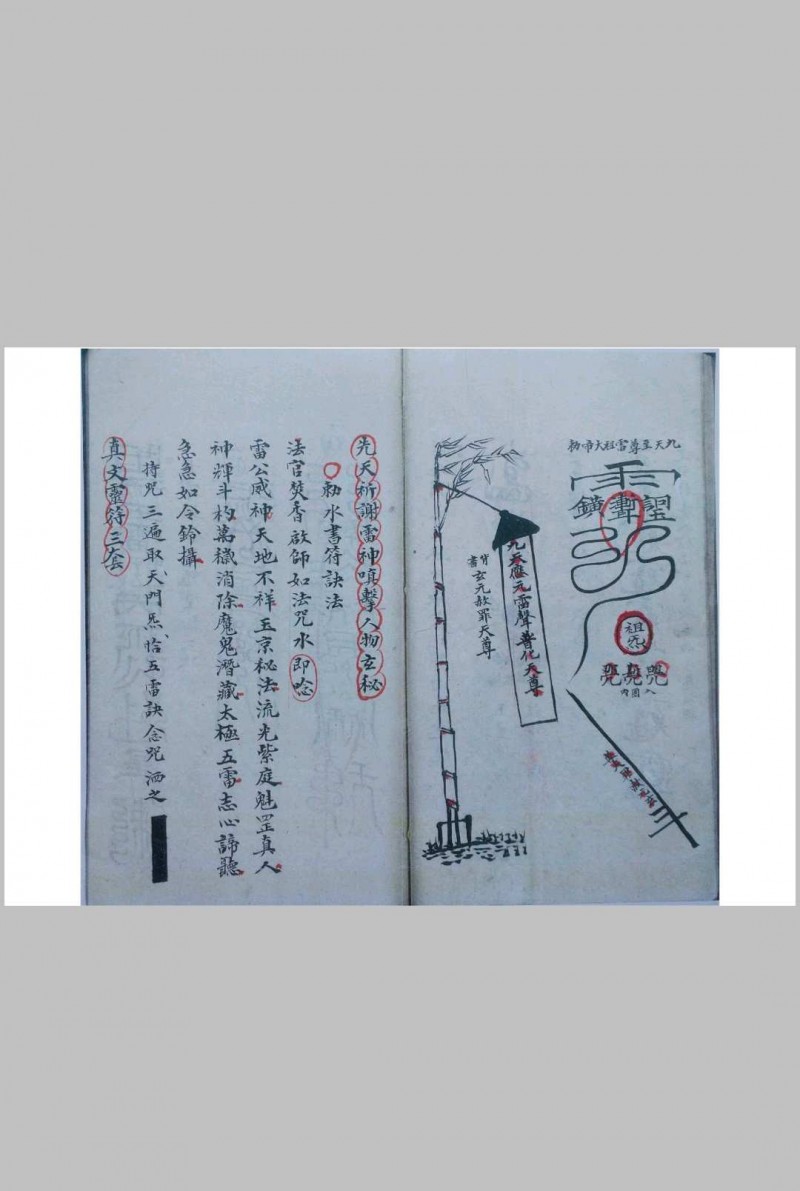 九天至尊雷祖大帝勅
祖炁
入圈內
九天應元雷聲普化天尊
背書玄元赦罪天尊
先天祈謝雷神嗔擊人物玄秘
勅水書符訣法
法官焚香啟師如法咒水即唸
雷公威神天地不祥玉京秘法流光紫庭魁罡真人
神輝斗杓萬穢消除魔鬼潛藏太極五雷志心諦聽
急急如令鈴攝
持咒三遍取天門炁恰五雷訣念咒洒之
真文靈符三套